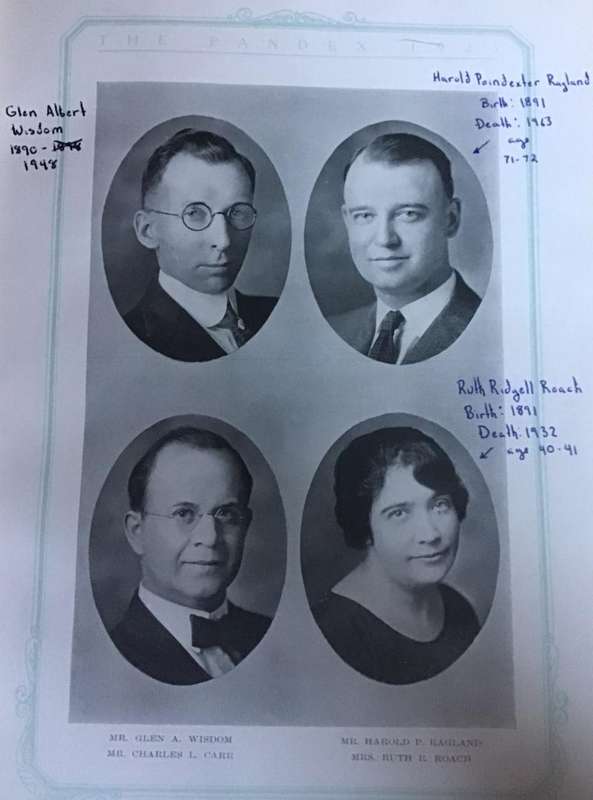 THE PANDEX
Glen Albert
Wisdom
1890 - 1898
1948
Harold Poindexter Ragland
Birth: 1891
Death: 1963
age
71-72
Ruth Ridgell Roach
Birth: 1891
Death: 1932
age 40-41
MR. GLEN A. WISDOM
MR. CHARLES L. CARR
MR. HAROLD P. RAGLAND
MRS. RUTH R. ROACH